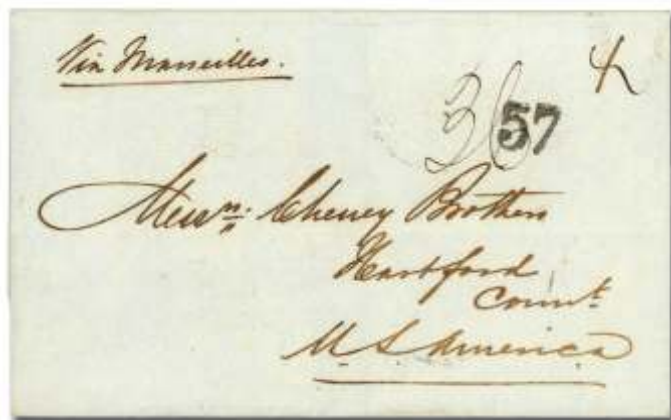 Via Marseilles.
36 57
Messrs: Cheney Brothers
Hartford
Connt
U S America